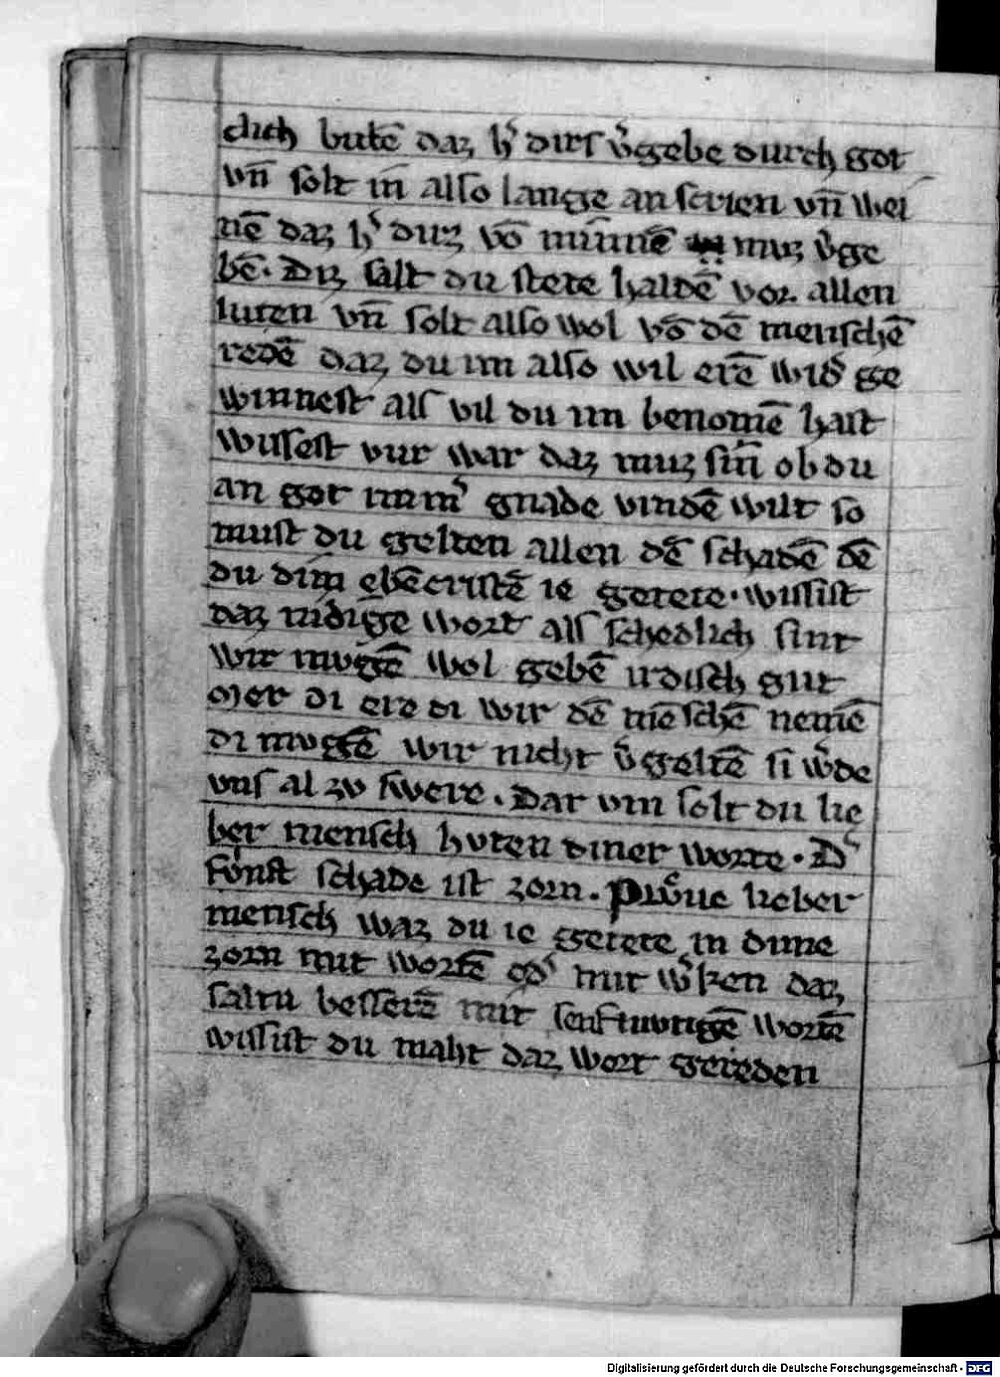 dich butē daz h' dirs v'gebe durch got
vn̄ solt in also lange an scrien vn̄ wei
nē daz h' duz vō minnē muz v'ge
bē. Diz salt du stete haldē vor allen
luten vn̄ solt also wol vō dē menschē
redē daz du im also vil erē wid' ge
winnest als vil du im benomē hast
wissest vur war daz muz sin ob du
an got imm' gnade vindē wilt so
must du gelten allen dē schadē dē
du dim ebēcristē ie getete. wissist
daz nidige wort als schedlich sint
wir mugē wol gebē irdisch gut
mer di ere di wir dē mēschē nemē
di mugē wir nicht v'geltē si w'de
uns al zu swere. Dar um solt du lie
ber mensch huten diner worte. D'
fonft schade ist zorn. Pruue lieber
mensch waz du ie getete in dime
zorn mit wortē od' mit w'ken daz
saltu besserē mit senftmutigē wortē
wissist du maht daz wort gereden
Digitalisierung gefördert durch die Deutsche Forschungsgemeinschaft - DFG